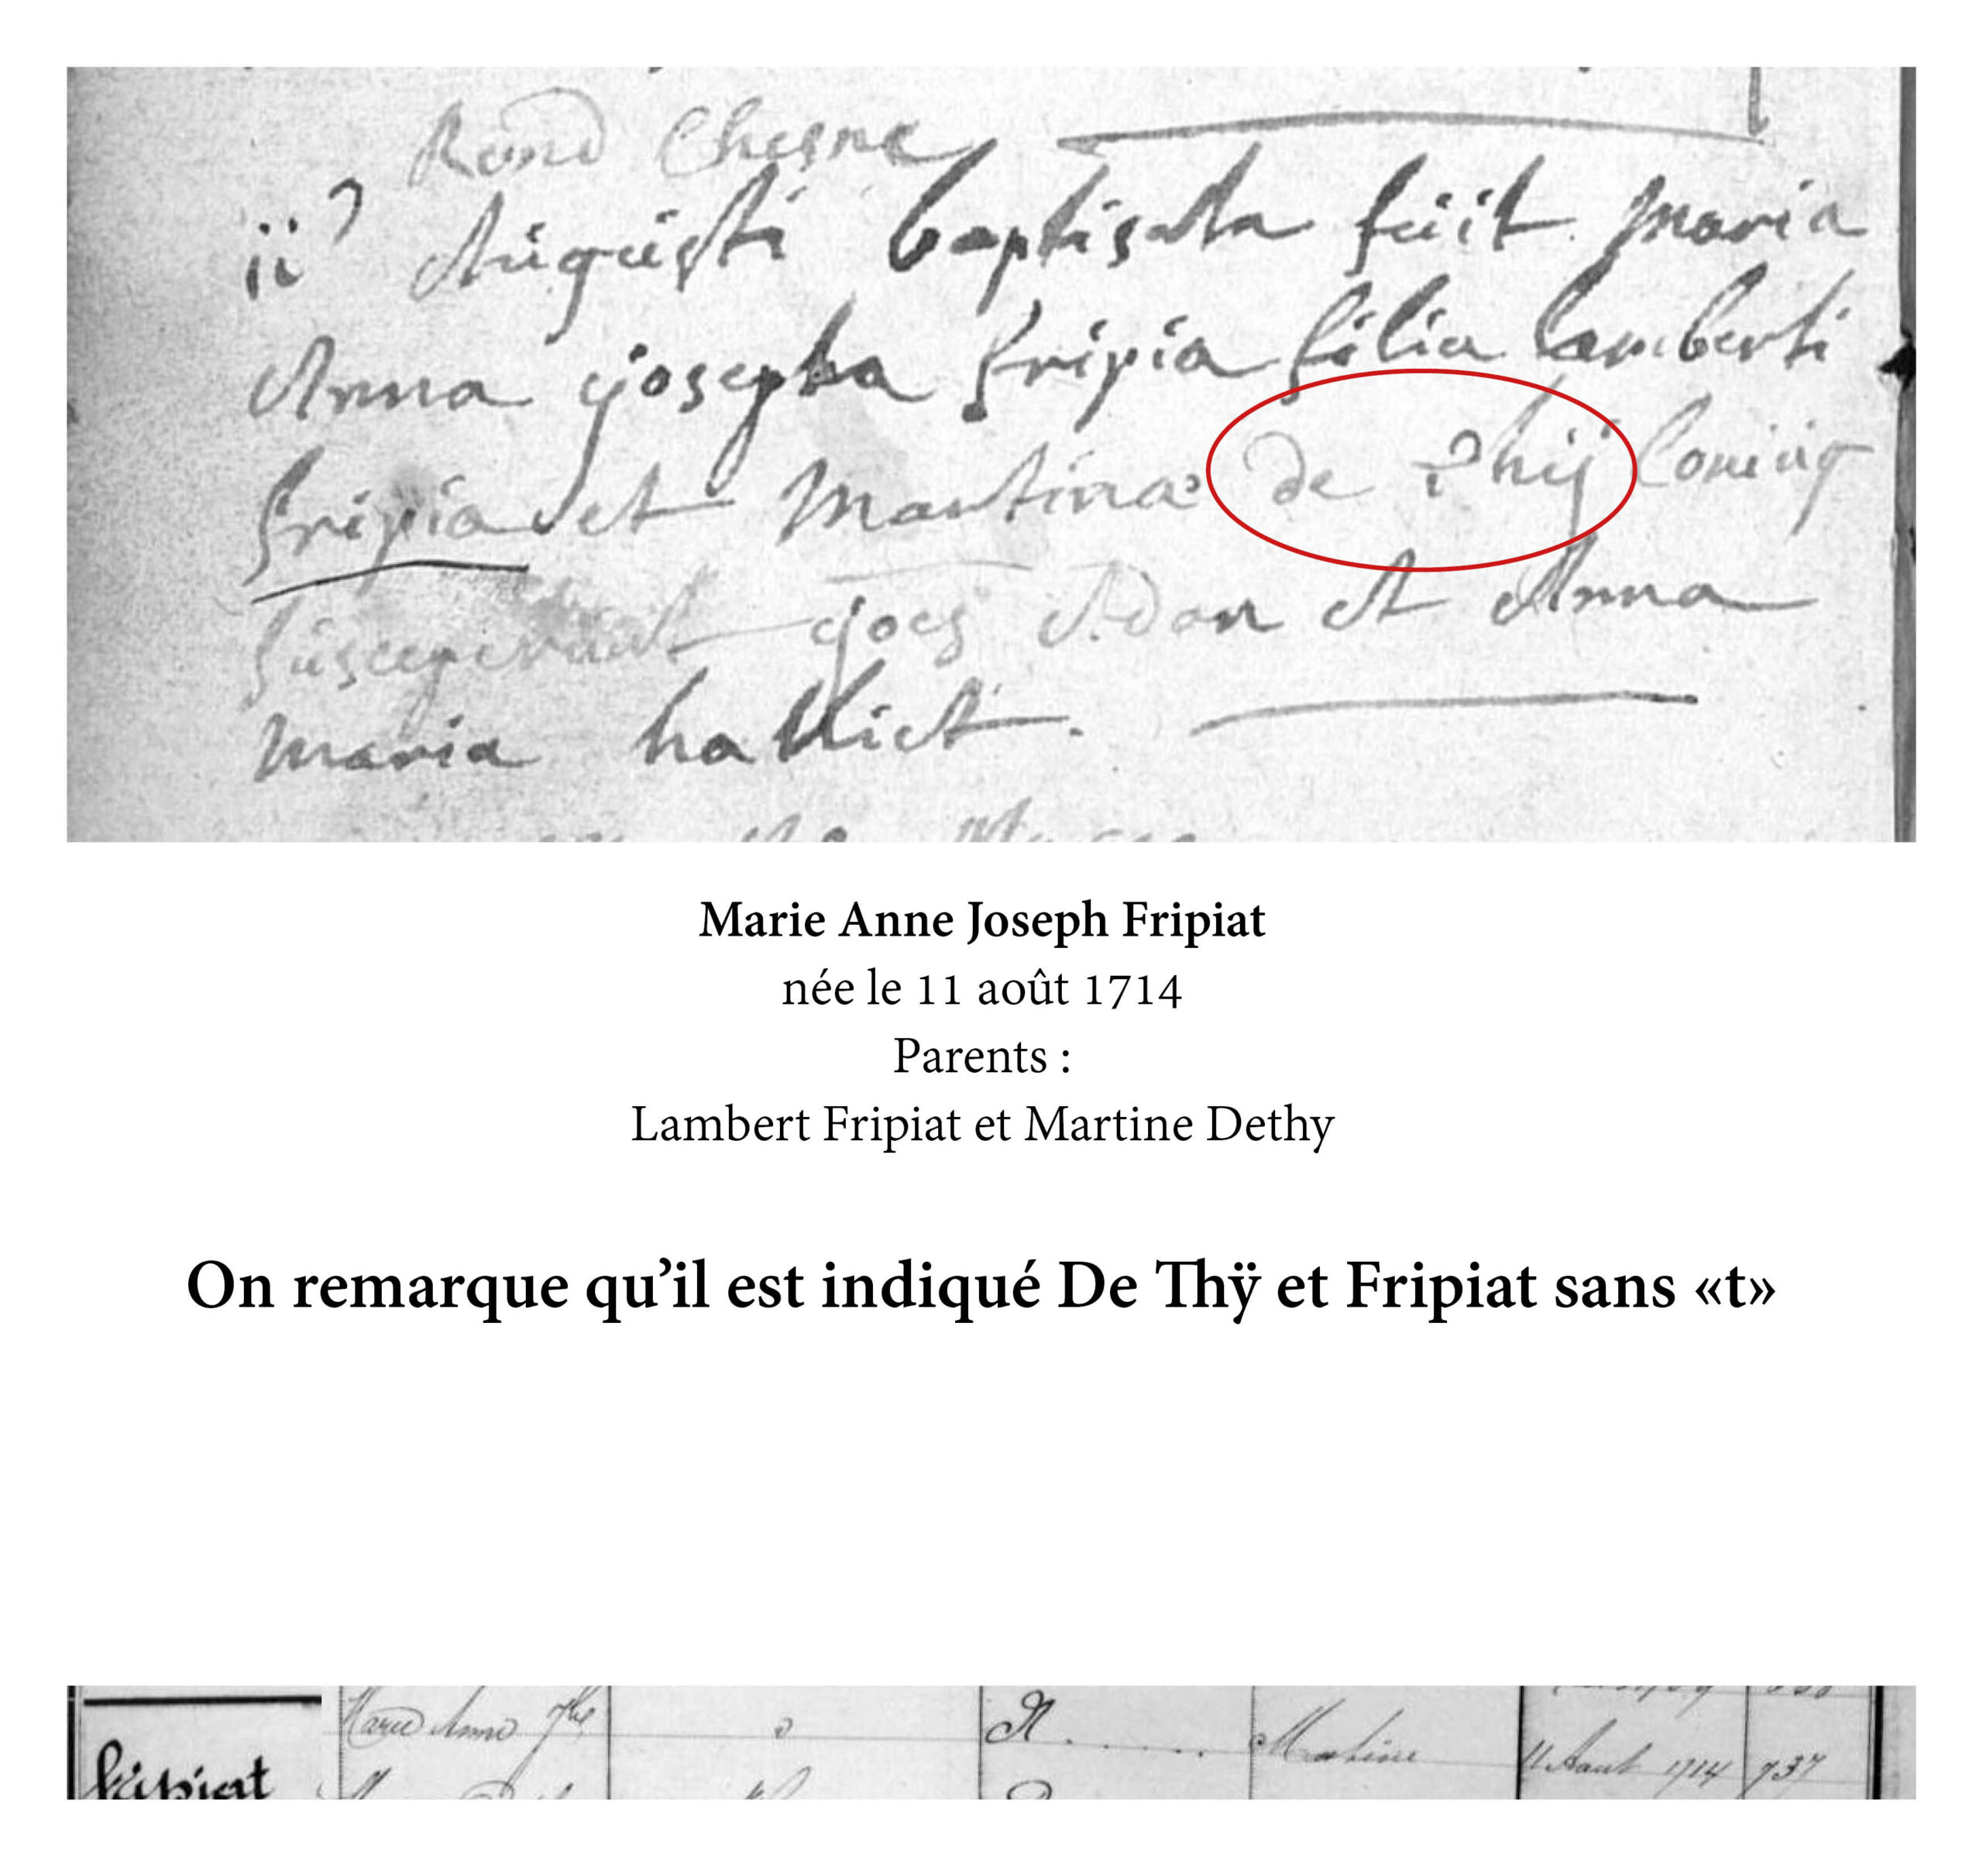 Rond Chesne
ii Augusti baptisata fuit Maria
Anna josepha fripia filia lamberti
fripia et Martinæ de Thij Coniug
susceperunt joes Adan et Anna
maria halliet.
Marie Anne Joseph Fripiat
née le 11 août 1714
Parents :
Lambert Fripiat et Martine Dethy
On remarque qu’il est indiqué De Thÿ et Fripiat sans «t»
Marie Anne Jhe Martine 11 Aout 1714 737
fripiat